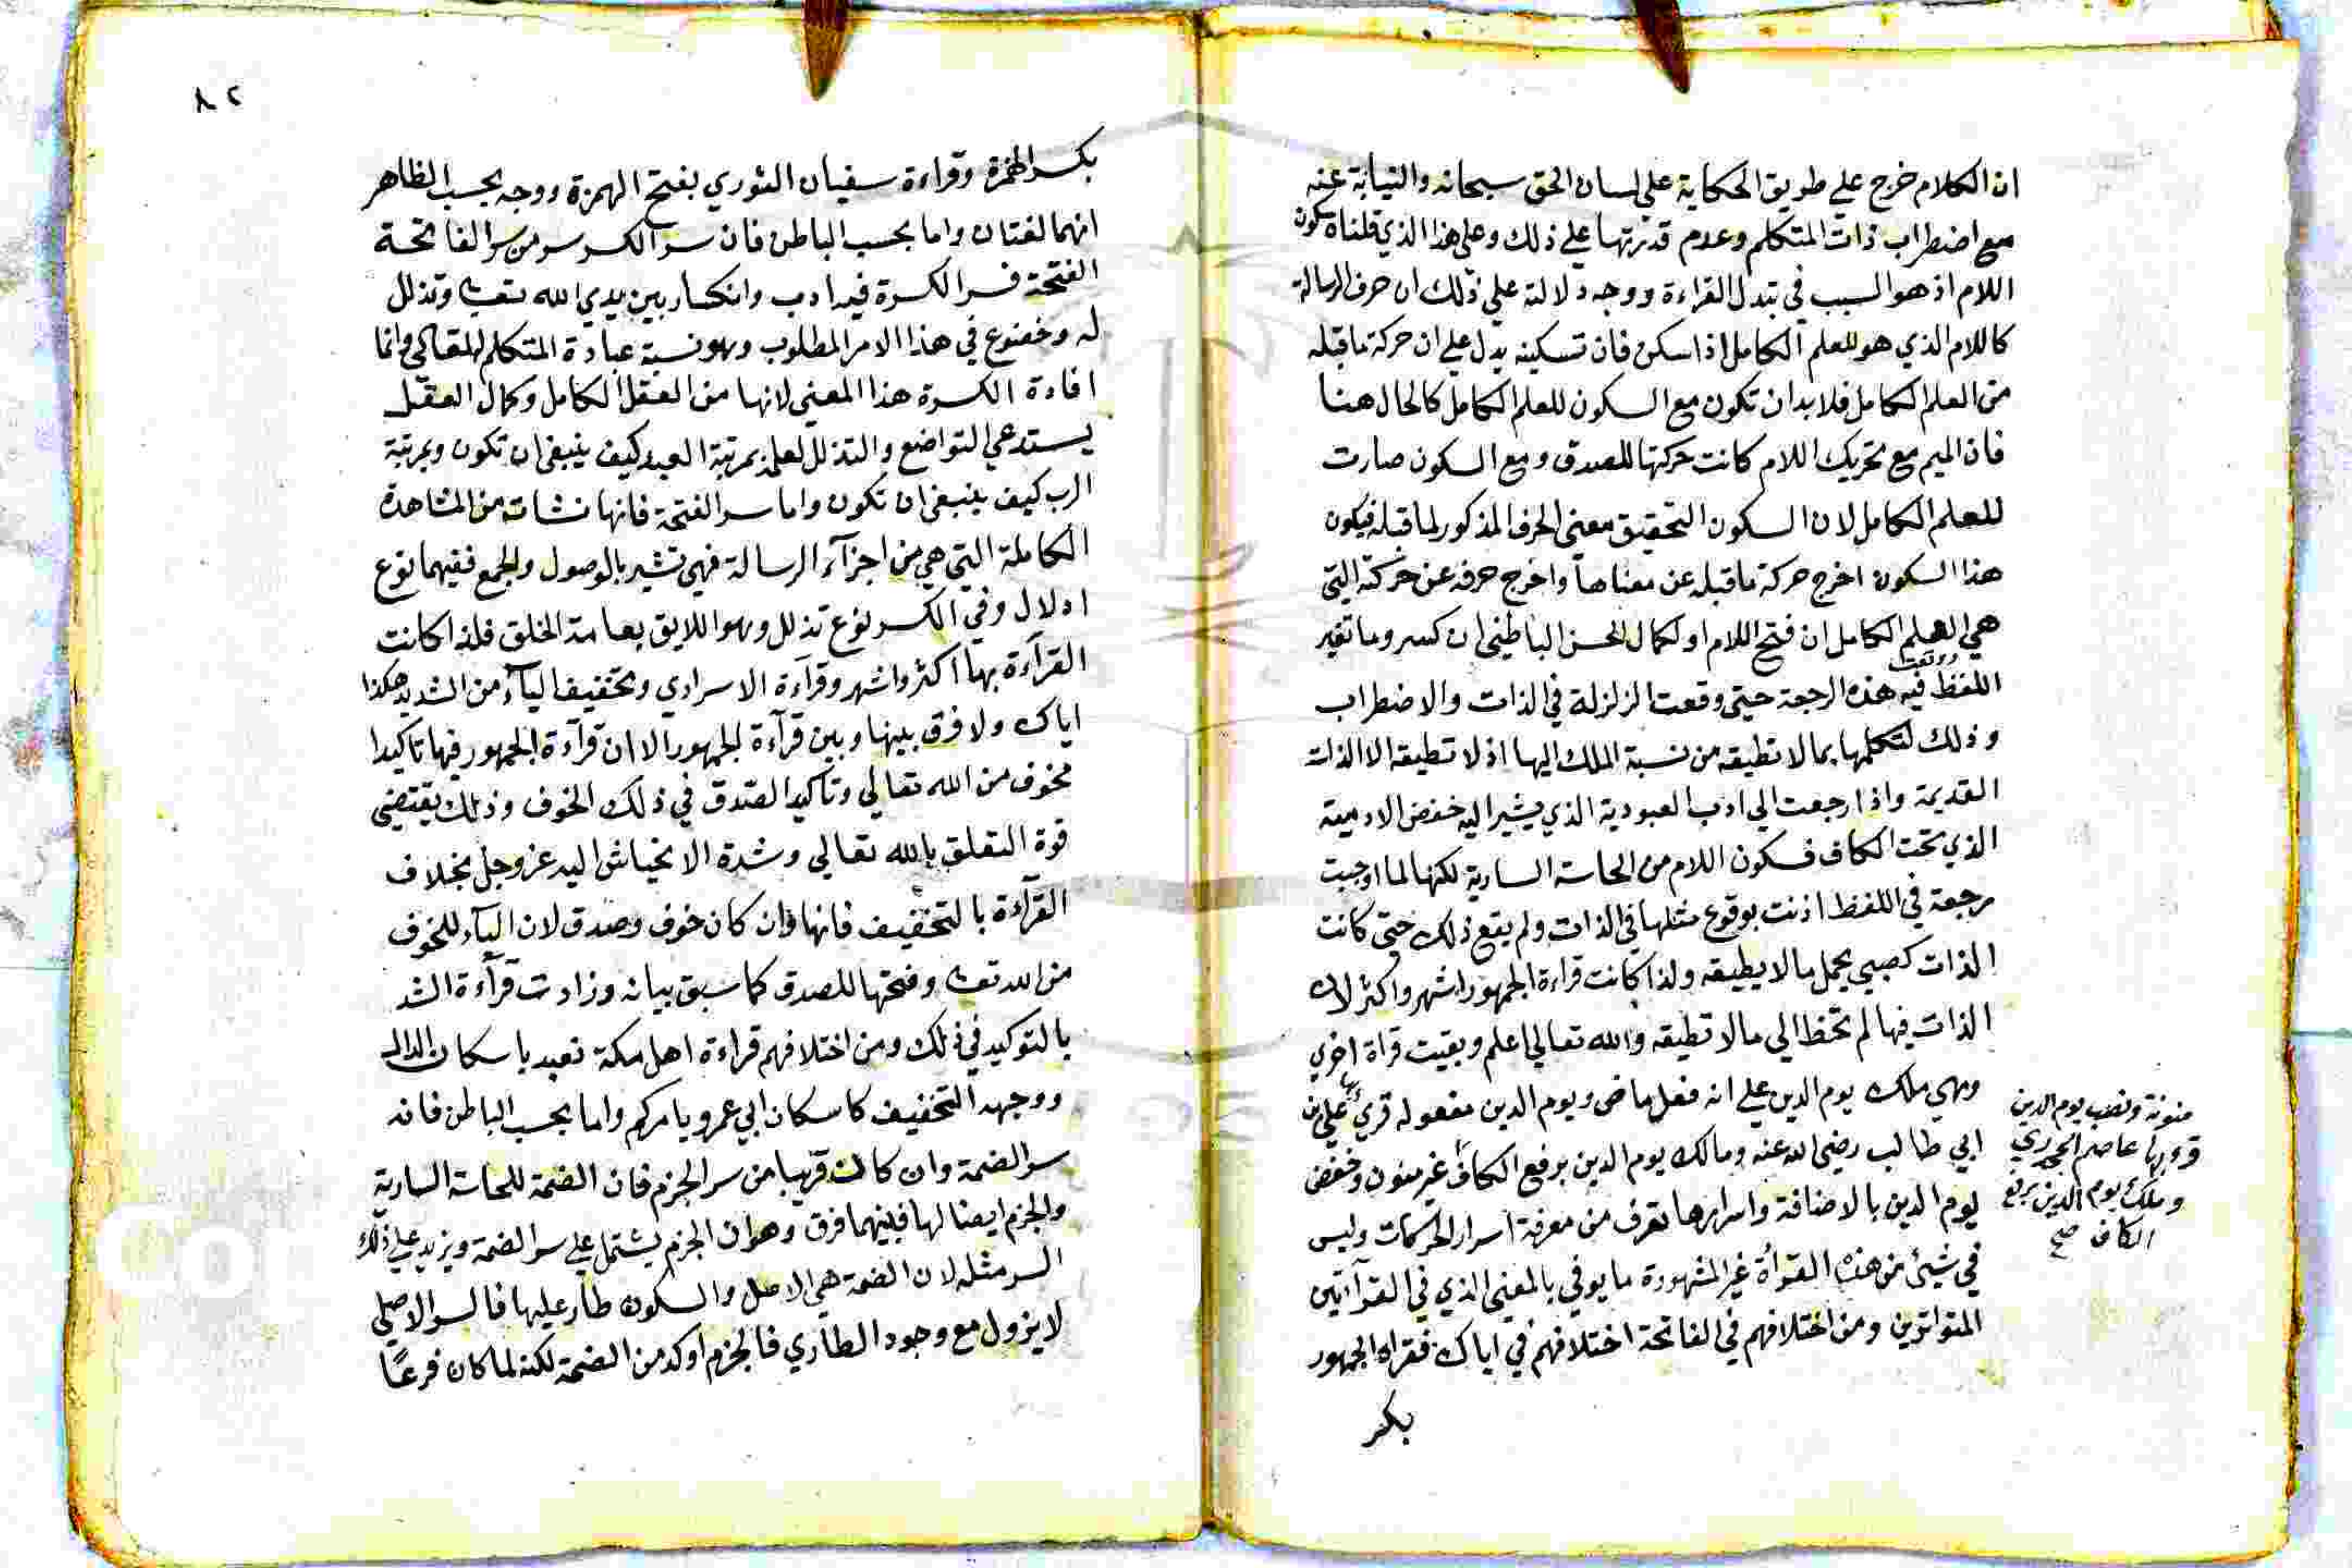 ان الكلام خرج علي طريق الحكاية علي لسان الحق سبحانه والنيابة عنه
مع اضطراب ذات المتكلم وعدم قدرتها علي ذلك وعلي هذا الذي قلناه سكون
اللام اذ هو السبب في تبدل القراءة ووجه دلالته علي ذلك ان حرف الرسالة
كاللام الذي هو للعلم الكامل اذا سكن فان تسكينه يدل علي ان حركة ما قبله
من العلم الكامل فلا بد ان تكون مع السكون للعلم الكامل كالحال هنا
فان الميم مع تحريك اللام كانت حركتها للصدق ومع السكون صارت
للعلم الكامل لان السكون التحقيق معني الحرف المذكور لما قبله فيكون
هذا السكون اخرج حركة ما قبله عن معناها واخرج حرفه عن حركته التي
هي العلم الكامل ان فتح اللام او لكمال الحس الباطني ان كسر وما تغير
اللفظ فيه هذه الرجعة حتي وقعت الزلزلة في الذات والاضطراب
وذلك لتكلمها بما لا تطيقه من نسبة الملك اليها اذ لا تطيقه الا الذات
القديمة واذا رجعت الي ادب العبودية الذي يشير اليه خفض الادمية
الذي تحت الكاف فسكون اللام من الحاسة السارية لكنها لما اوجبت
رجعة في اللفظ اذنت بوقوع مثلها في الذات ولم يقع ذلك حتي كانت
الذات كصبي يحمل ما لا يطيقه ولذا كانت قراءة الجمهور اشهر واكثر لان
الذات فيها لم تحظ الي ما لا تطيقه والله تعالي اعلم وبقيت قراة اخري
وهي ملك يوم الدين علي انه فعل ماض ويوم الدين مفعوله قرئ بها علي بن
ابي طالب رضي الله عنه ومالك يوم الدين برفع الكاف غير منون وخفض
يوم الدين بالاضافة واسرارها تعرف من معرفة اسرار الحركات وليس
في شيئ من هذه القرأة غير المشهورة ما يوفي بالمعني الذي في القرآءتين
المتواترين ومن اختلافهم في الفاتحة اختلافهم في اياك فقراه الجمهور
بكسر
منونة ونصب يوم الدين
قرء بها عاصم الجحدري
وملك يوم الدين برفع
الكاف صح
٨٢
بكسر الهمزة وقراءة سفيان الثوري بفتح الهمزة ووجه بحسب الظاهر
انهما لغتان واما بحسب الباطن فان سر الكسر سر من سر الفاتحة
الفتحة فسر الكسرة فيه ادب وانكسار بين يدي الله تعا وتذلل
له وخضوع في هذا الامر المطلوب وهو نسبة عبادة المتكلم وانما
افادة الكسرة هذا المعني لانها من العقل الكامل وكمال العقل
يستدعي التواضع والتذلل لعلمه بمرتبة العبد كيف ينبغي ان تكون وبمرتبة
الرب كيف ينبغي ان تكون واما سر الفتحة فانها نشات من المشاهدة
الكاملة التي هي من اجزآء الرسالة فهي تشير بالوصول والجمع ففيهما نوع
ادلال وفي الكسر نوع تذلل وهو اللايق بعامة الخلق فلذا كانت
القرآءة بها اكثر واشهر وقرآءة الاسراري وتخفيف اليآء من الشديد هكذا
اياك ولا فرق بينها وبين قرآءة الجمهور الا ان قرآءة الجمهور فيها تاكيدا
مخوف من الله تعالي وتاكيد الصدق في ذلك الخوف وذلك يقتضي
قوة التعلق بالله تعالي وشدة الانحياش اليه عز وجل بخلاف
القرآءة بالتخفيف فانها وان كان خوف وصدق لان اليآء للخوف
من الله تعا وفتحها للصدق كما سبق بيانه وزادت قرآءة الشد
بالتوكيد في ذلك ومن اختلافهم قراءة اهل مكة نعبد باسكان الدال
ووجهه التخفيف كاسكان ابي عمرو يامركم واما بحسب الباطن فانه
سر الضمة وان كانت قريبا من سر الجزم فان الضمة للحاسة السارية
والجزم ايضا لها فبينهما فرق وهو ان الجزم يشتمل علي سر الضمة ويزيد علي ذلك
السر مثله لان الضمة هي الاصل والسكون طار عليها فالسر الاصلي
لا يزول مع وجود الطاري فالجزم اوكد من الضمة لكنه لما كان فرعًا